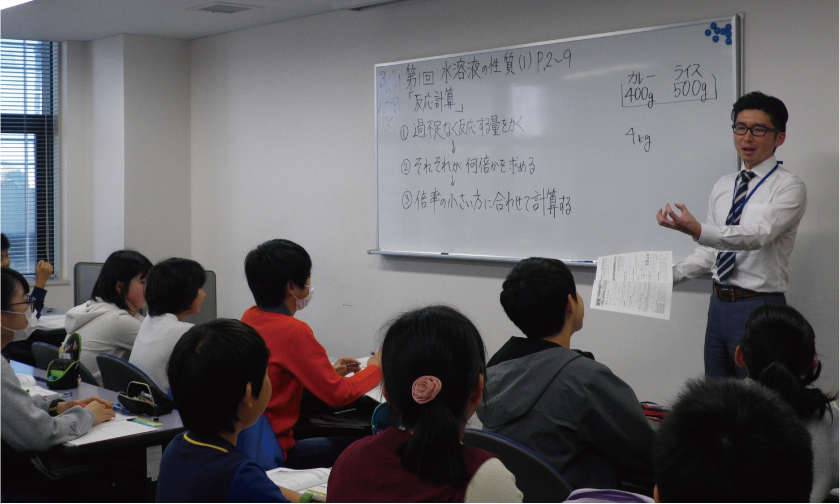 第1回 水溶液の性質(1) P.2~9
「反応計算」
① 過不足なく反応する量をかく
↓
② それぞれが何倍かを求める
↓
③ 倍率の小さい方に合わせて計算する
カレー ライス
400g 500g
4kg